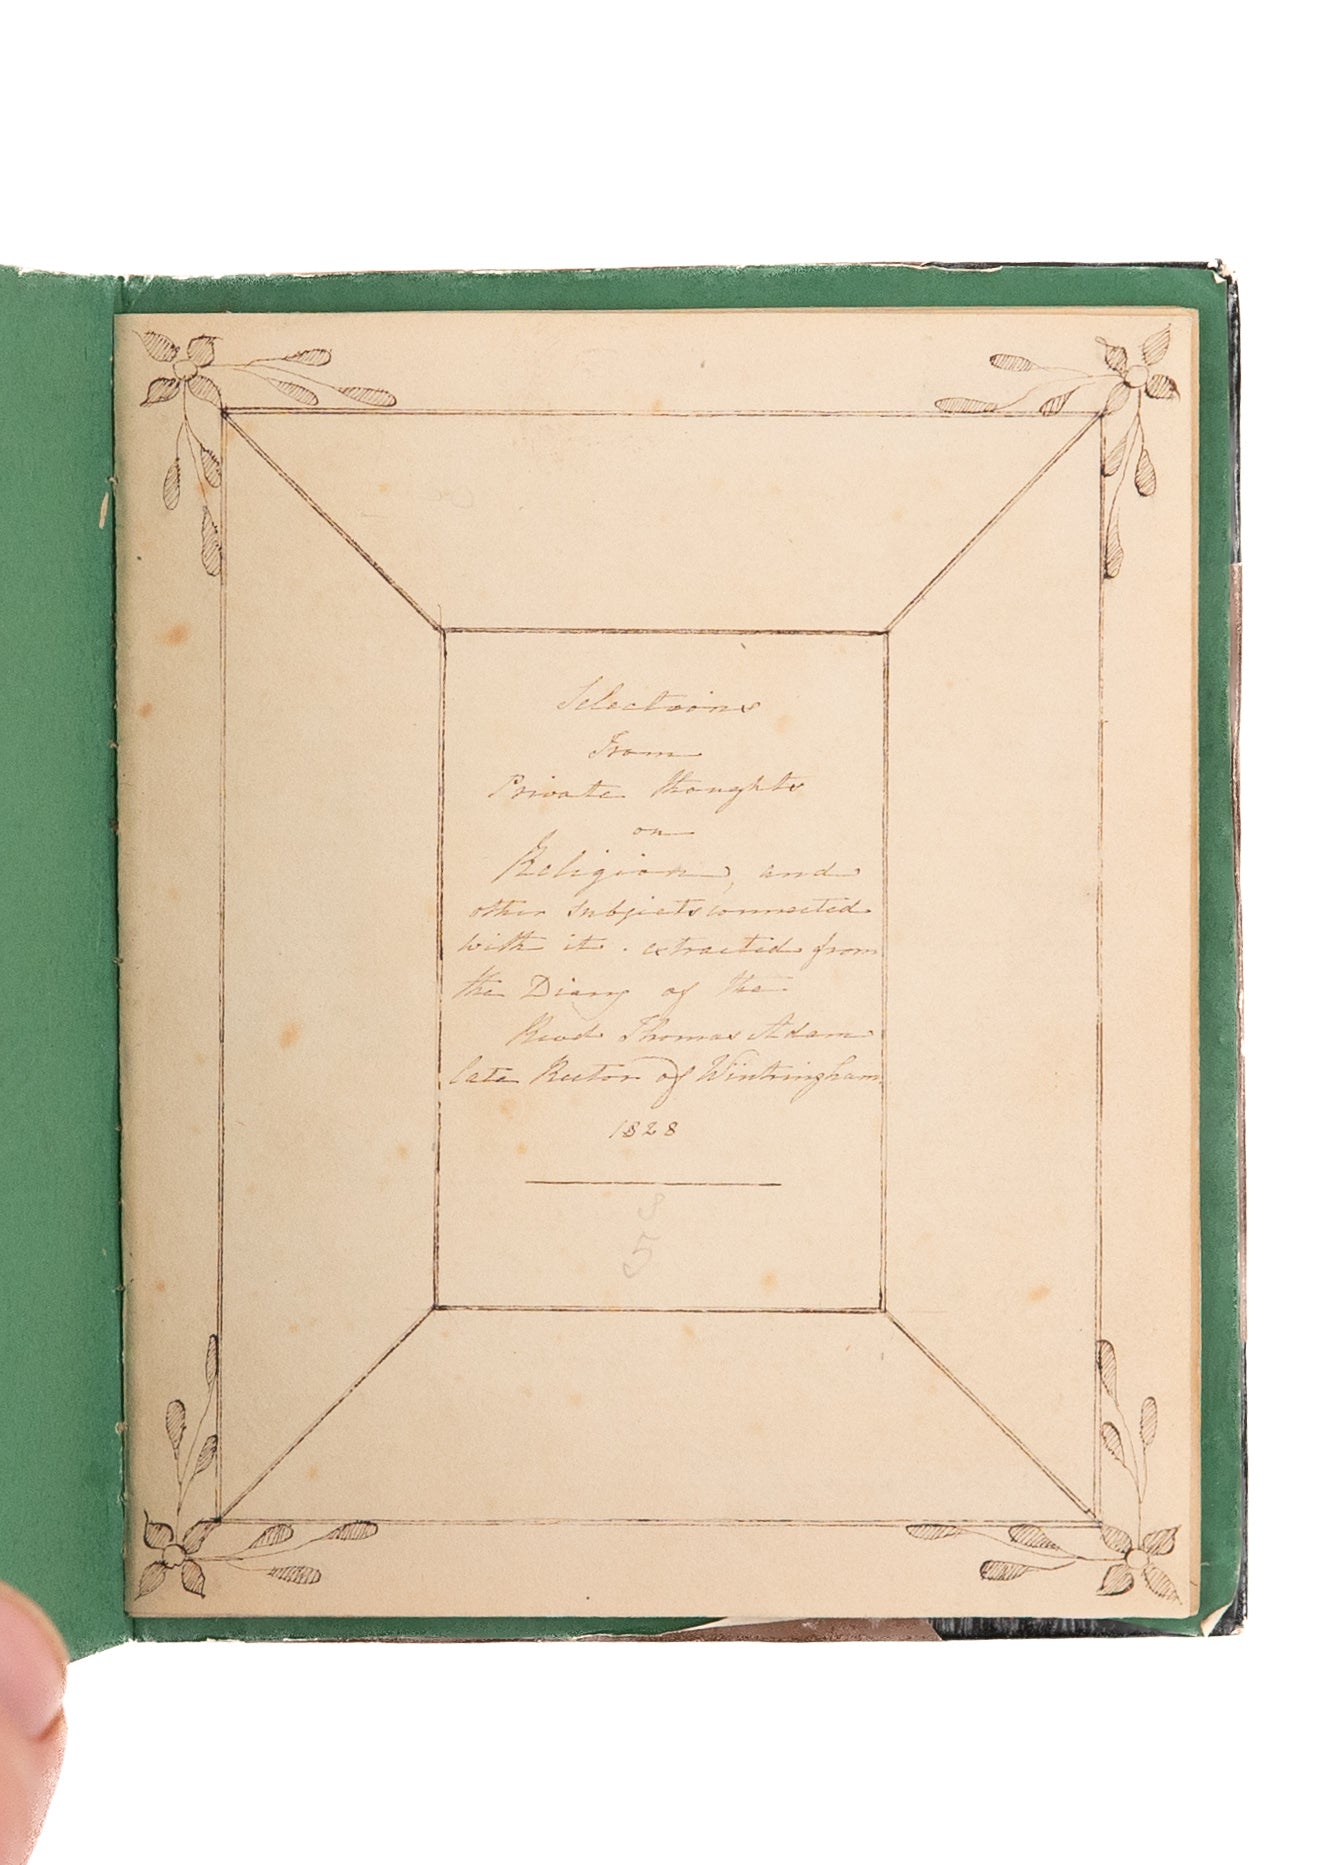 Selections
From
Private thoughts
on
Religion, and
other Subjects connected
with it. extracted from
the Diary of the
Revd Thomas Adam
late Rector of Wintringham.
1828